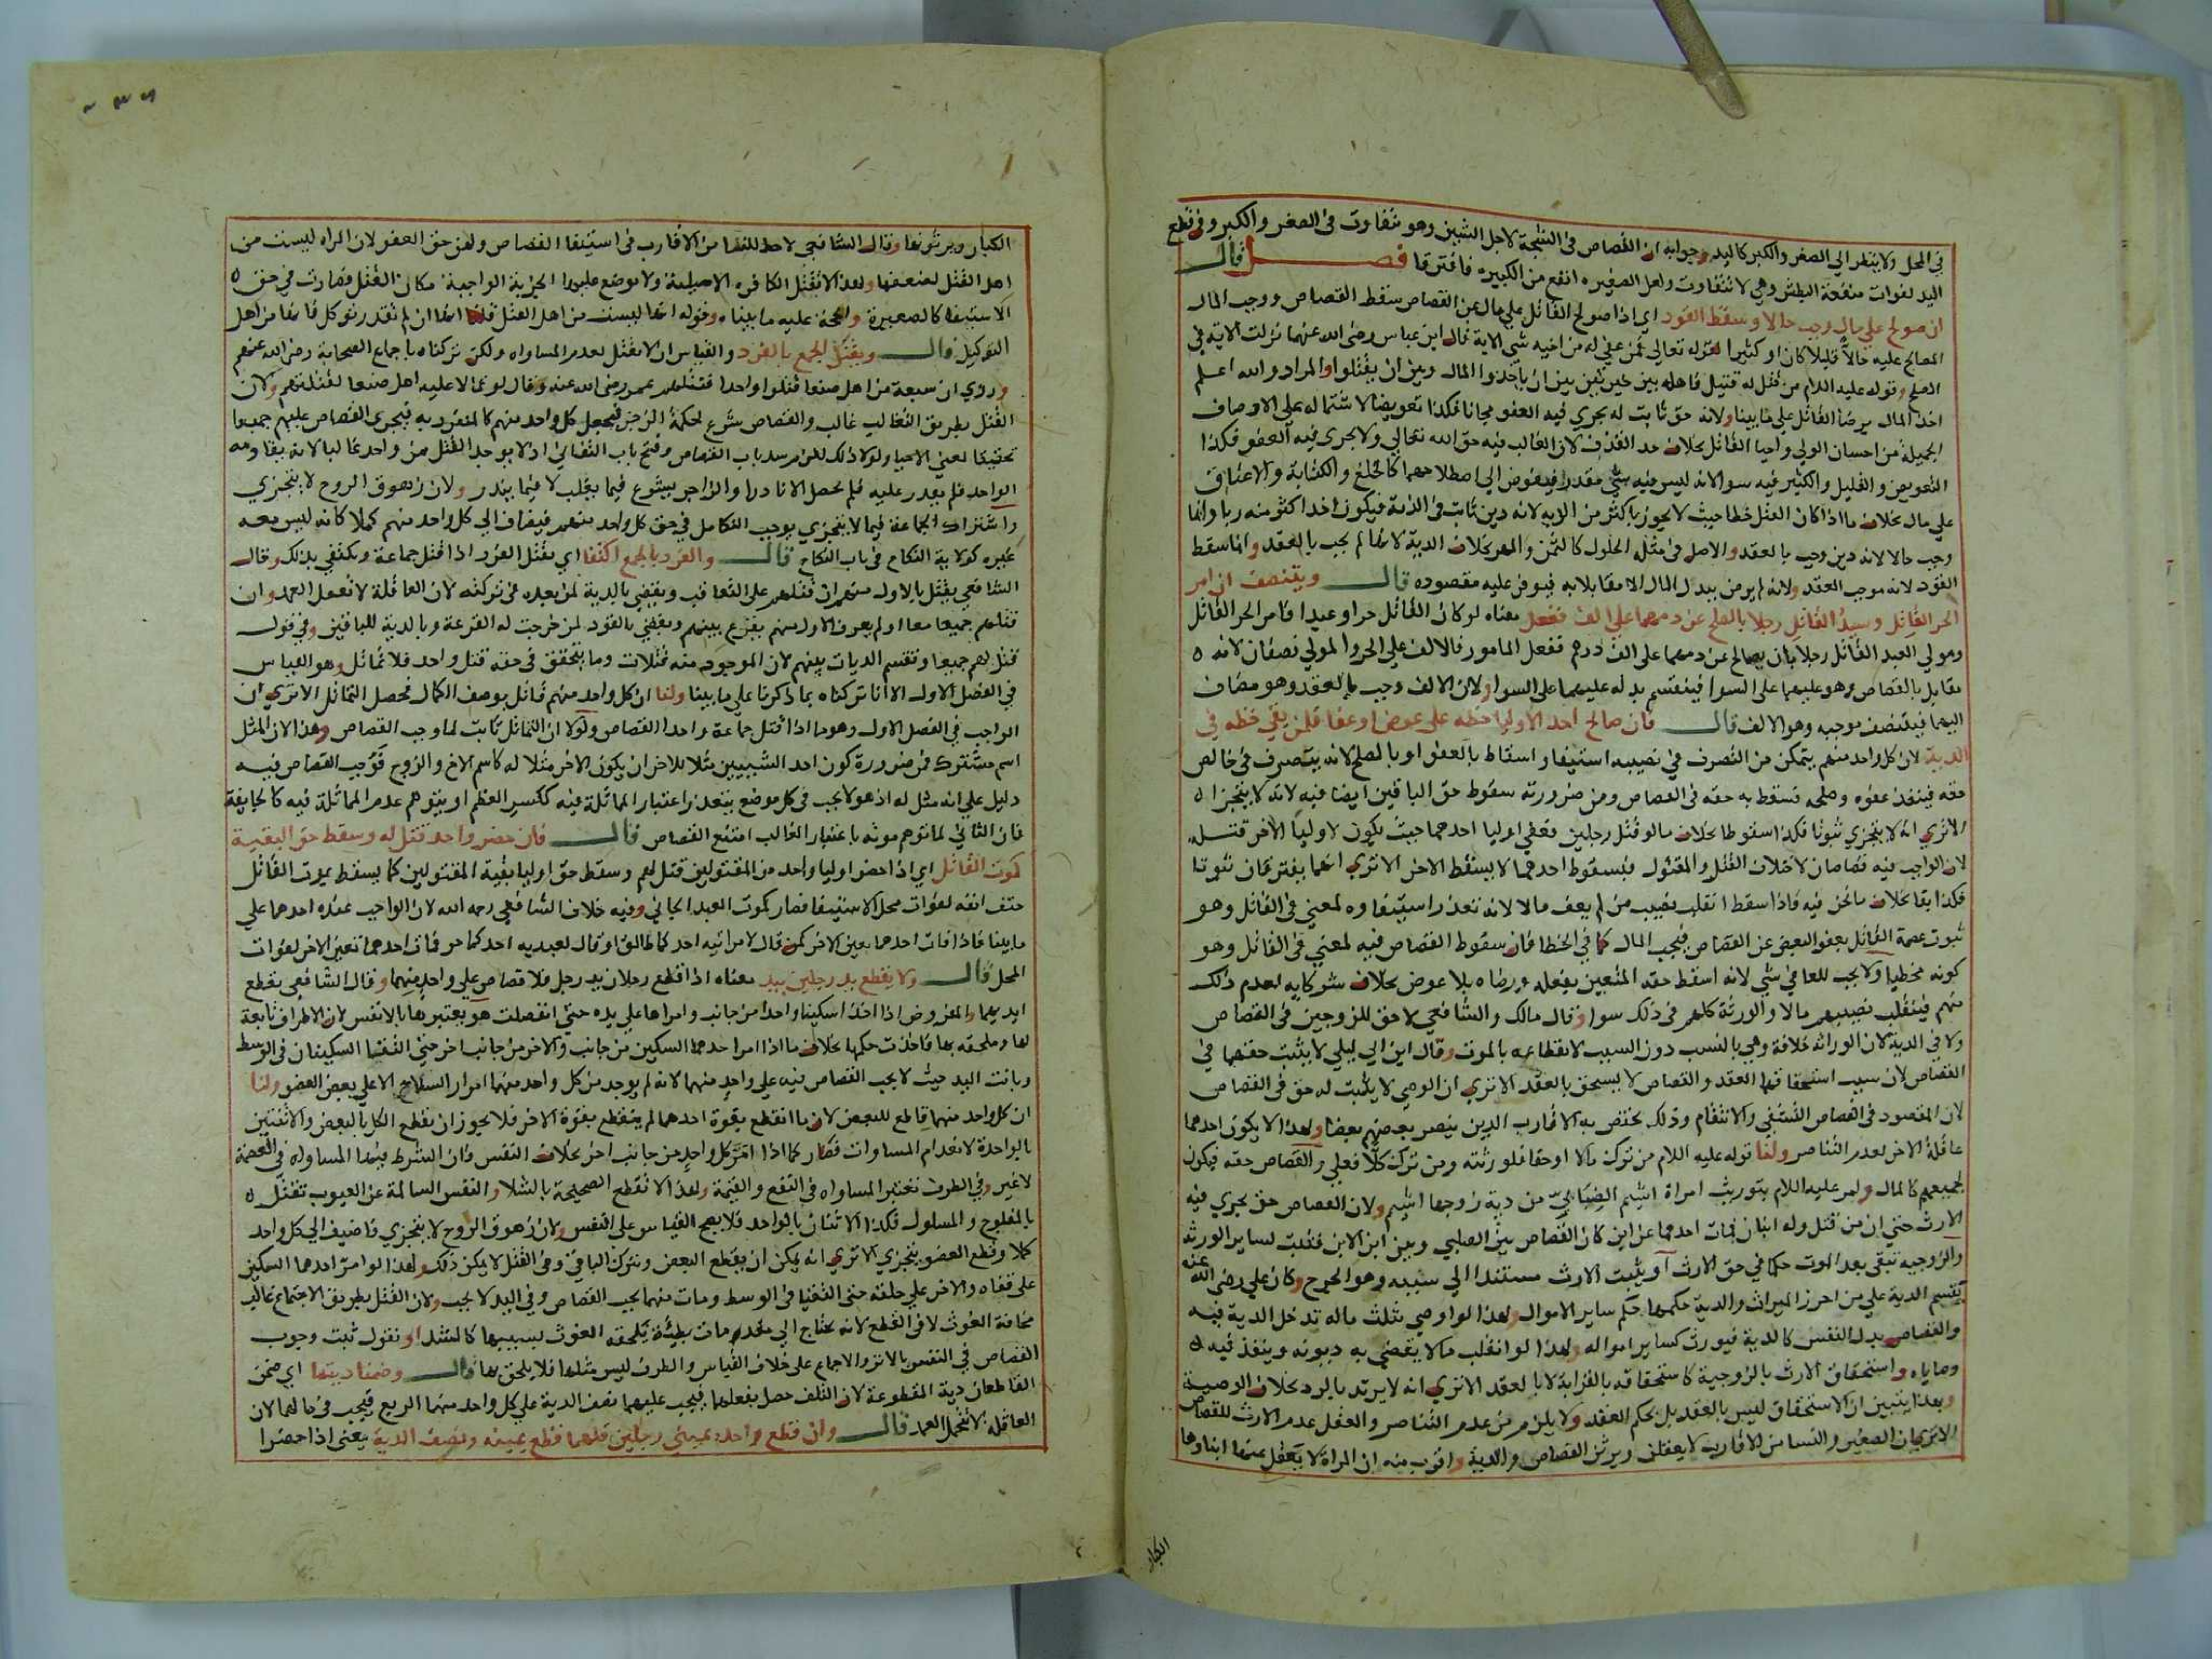 في المحل ولا ينظر الي الصغر والكبر كاليد وجوابه ان القصاص في الشجة لاجل الشين وهو يتفاوت في الصغر والكبر وفي قطع
اليد لفوات منفعة البطش وهي لا تتفاوت ولعل الصغيره انفع من الكبيره فافترقا فصل قال
ان صولح علي مال وجب حالا وسقط القود اي اذا صولح القاتل علي مال عن القصاص سقط القصاص ووجب المال
المصالح عليه حالًّا قليلا كان او كثيرا لقوله تعالي فمن عفي له من اخيه شي الاية قال ابن عباس رضي الله عنهما نزلت الاية في
الصلح وقوله عليه السلام من قتل له قتيل فاهله بين خيرتين بين ان ياخذوا المال وبين ان يقتلوا والمراد والله اعلم
اخذ المال برضا القاتل علي ما بينا ولانه حق ثابت له يجري فيه العفو مجانا فكذا تعويضا لاشتماله علي الاوصاف
الجميلة من احسان الولي واحيا القاتل بخلاف حد القذف لان الغالب فيه حق الله تعالي ولا يجري فيه العفو فكذا
التعويض والقليل والكثير فيه سوا لانه ليس فيه شي مقدر فيفوض الي اصطلاحهما كالخلع والكتابة والاعتاق
علي مال بخلاف ما اذا كان القتل خطا حيث لا يجوز باكثر من الدية لانه دين ثابت في الذمة فيكون اخذ اكثر منه ربا وانما
وجب حالا لانه دين وجب بالعقد والاصل في مثله الحلول كالثمن والمهر بخلاف الدية لانها لم تجب بالعقد وانما سقط
القود لانه موجب العقد ولانه لم يرض ببدل المال الا مقابلا به فيوفر عليه مقصوده قال ويتنصف ان امر
الحر القاتل وسيد القاتل رجلا بالصلح عن دمهما علي الف ففعل معناه لو كان القاتل حرا وعبدا فامر الحر القاتل
ومولي العبد القاتل رجلا بان يصالح عن دمهما علي الف درهم ففعل المامور فالالف علي الحر والمولي نصفان لانه
مقابل بالقصاص وهو عليهما علي السوا فينقسم بدله عليهما علي السوا ولان الالف وجب بالعقد وهو مضاف
اليهما فيتنصف موجبه وهو الالف قال فان صالح احد الاوليا حظه علي عوض او عفا فلمن بقي حظه في
الدية لان كل واحد منهم يتمكن من التصرف في نصيبه استيفا واسقاط بالعفو او بالصلح لانه يتصرف في خالص
حقه فينفذ عفوه وصلحه فسقط به حقه في القصاص ومن ضرورته سقوط حق الباقين ايضا فيه لانه لا يتجزا
الا تري انه لا يتجزي ثبوتا فكذا سقوطا بخلاف ما لو قتل رجلين فعفي اوليا احدهما حيث يكون لاوليا الاخر قتله
لان الواجب فيه قصاصان لاختلاف القتل والمقتول فبسقوط احدهما لا يسقط الاخر الا تري انهما يفترقان ثبوتا
فكذا بقا بخلاف ما نحن فيه فاذا سقط انقلب نصيب من لم يعف مالا لانه تعذر استيفاوه لمعني في القاتل وهو
ثبوت عصمة القاتل بعفو البعض عن القصاص فيجب المال كما في الخطا فان سقوط القصاص فيه لمعني في القاتل وهو
كونه مخطيا ولا يجب للعافي شي لانه اسقط حقه المتعين بفعله ورضاه بلا عوض بخلاف شركايه لعدم ذلك
منهم فينقلب نصيبهم مالا والورثة كلهم في ذلك سوا وقال مالك والشافعي لا حق للزوجين في القصاص
ولا في الدية لان الوراثه خلافة وهي بالنسب دون السبب لانقطاعه بالموت وقال ابن ابي ليلي لا يثبت حقهما في
القصاص لان سبب استحقاقهما العقد والقصاص لا يستحق بالعقد الا تري ان الوصي لا يثبت له حق في القصاص
لان المقصود في القصاص التشفي والانتقام وذلك يختص به الاقارب الذين ينصر بعضهم بعضا ولهذا لا يكون احدهما
عاقلة الاخر لعدم التناصر ولنا قوله عليه السلام من ترك مالا او حقا فلورثته ومن ترك كلًّا فعلي والقصاص حقه فيكون
لجميعهم كالمال وامر عليه السلام بتوريث امراة اشيم الضبابي من دية زوجها اشيم ولان القصاص حق يجري فيه
الارث حتي ان من قتل وله ابنان فمات احدهما عن ابن كان القصاص بين الصلبي وبين ابن الابن فثبت لساير الورثه
والزوجيه تبقي بعد الموت حكما في حق الارث او يثبت الارث مستندا الي سببه وهو الجرح وكان علي رضي الله عنه
يقسم الدية علي من احرز الميراث والدية حكمها حكم ساير الاموال ولهذا لو اوصي بثلث ماله تدخل الدية فيه
والقصاص بدل النفس كالدية فيورث كساير امواله ولهذا لو انقلب مالا يقضي به ديونه وينفذ فيه
وصاياه واستحقاق الارث بالزوجية كاستحقاقه بالقرابة لا بالعقد الا تري انه لا يرتد بالرد بخلاف الوصية
وبهذا يتبين ان الاستحقاق ليس بالعقد بل بحكم العقد ولا يلزم من عدم التناصر والعقل عدم الارث للقصاص
الا تري ان الصغير والنسا من الاقارب لا يعقلن ويرثن القصاص والدية واقرب منه ان المراة لا يعقل عنها ابناوها
الكبار
الكبار ويرثونها وقال الشافعي لا حظ للنسا من الاقارب في استيفا القصاص ولهن حق العفو لان المراه ليست من
اهل القتل لضعفها ولهذا لا تقتل الكافره الاصلية ولا توضع عليها الجزية الواجبة مكان القتل فصارت في حق
الاستيفا كالصغيرة والحجة عليه ما بيناه وقوله انها ليست من اهل القتل قلنا انها ان لم تقدر تو كل فانها من اهل
التوكيل قال ويقتل الجمع بالفرد والقياس ان لا يقتل لعدم المساواه ولكن تركناه باجماع الصحابة رضي الله عنهم
وروي ان سبعة من اهل صنعا قتلوا واحدا فقتلهم عمر رضي الله عنه وقال لو تمالا عليه اهل صنعا لقتلتهم ولان
القتل بطريق التغالب غالب والقصاص شرع لحكمة الزجر فيجعل كل واحد منهم كالمنفرد به فيجري القصاص عليهم جميعا
تحقيقا لمعني الاحيا ولولا ذلك للزم سد باب القصاص وفتح باب التفاني اذ لا يوجد القتل من واحد غالبا لانه يقاومه
الواحد فلم يقدر عليه فلم يحصل الا نادرا والزاجر يشرع فيما يغلب لا فيما يندر ولان زهوق الروح لا يتجزي
واشتراك الجماعة فيما لا يتجزي يوجب التكامل في حق كل واحد منهم فيضاف الي كل واحد منهم كملا كانه ليس معه
غيره كولاية النكاح في باب النكاح قال والفرد بالجمع اكتفا اي يقتل الفرد اذا قتل جماعة ويكتفي بذلك وقال
الشافعي يقتل بالاول منهم ان قتلهم علي التعاقب ويقضي بالدية لمن بعده في تركته لان العاقلة لا تعقل العمد وان
قتلهم جميعا معا او لم يعرف الاول منهم يقرع بينهم ويقضي بالقود لمن خرجت له القرعة وبالدية للباقين وفي قول
قتل لهم جميعا وتقسم الديات بينهم لان الموجود منه قتلات وما يتحقق في حقه قتل واحد فلا تماثل وهو القياس
في الفصل الاول الا انا تركناه بما ذكرنا علي ما بينا ولنا ان كل واحد منهم قاتل بوصف الكمال فحصل التماثل الا تري ان
الواجب في الفصل الاول وهو ما اذا قتل جماعة واحدا القصاص ولولا ان التماثل ثابت لما وجب القصاص وهذا لان المثل
اسم مشترك فمن ضرورة كون احد الشييين مثلا للاخر ان يكون الاخر مثلا له كاسم الاخ والزوج فوجب القصاص فيه
دليل علي انه مثل له اذ هو لا يجب في كل موضع يتعذر اعتبار المماثلة فيه ككسر العظم او يتوهم عدم المماثلة فيه كالجايفة
فان الثاني لما توهم موته باعتبار الغالب امتنع القصاص قال فان حضر واحد قتل له وسقط حق البقية
كموت القاتل اي اذا حضر اوليا واحد من المقتولين قتل لهم وسقط حق اوليا بقية المقتولين كما يسقط بموت القاتل
حتف انفه لفوات محل الاستيفا فصار كموت العبد الجاني وفيه خلاف الشافعي رحمه الله لان الواجب عنده احدهما علي
ما بينا فاذا فات احدهما تعين الاخر كمن قال لامراتيه احدكما طالق او قال لعبديه احدكما حر فمات احدهما تعين الاخر لفوات
المحل قال ولا يقطع يد رجلين بيد معناه اذا قطع رجلان يد رجل فلا قصاص علي واحد منهما وقال الشافعي يقطع
ايديهما والمفروض اذا اخذا سكينا واحدا من جانب وامراها علي يده حتي انفصلت هو يعتبرها بالانفس لان الاطراف تابعة
لها وملحقه بها فاخذت حكمها بخلاف ما اذا امر احدهما السكين من جانب والاخر من جانب اخر حتي التقتا السكينان في الوسط
وبانت اليد حيث لا يجب القصاص فيه علي واحد منهما لانه لم يوجد من كل واحد منهما امرار السلاح الا علي بعض العضو ولنا
ان كل واحد منهما قاطع للبعض لان ما انقطع بقوة احدهما لم ينقطع بقوة الاخر فلا يجوز ان يقطع الكل بالبعض والاثنتين
بالواحدة لانعدام المساوات فصار كما اذا امر كل واحد من جانب اخر بخلاف النفس فان الشرط فيها المساواه في العصمة
لا غير وفي الطرف تعتبر المساواه في النفع والقيمة ولهذا لا تقطع الصحيحة بالشلا والنفس السالمة عن العيوب تقتل
بالمفلوج والمسلول فكذا الاثنان بالواحد فلا يصح القياس علي النفس ولان زهوق الروح لا يتجزي فاضيف الي كل واحد
كملا وقطع العضو يتجزي الا تري انه يمكن ان يقطع البعض ويترك الباقي وفي القتل لا يمكن ذلك ولهذا لو امر احدهما السكين
علي قفاه والاخر علي حلقه حتي التقتا في الوسط ومات منهما يجب القصاص وفي اليد لا يجب ولان القتل بطريق الاجتماع غالب
مخافة الغوث لا في القطع لانه يحتاج الي مقدمات بطيئة يلحقه الغوث بسببها كالنشد او نقول ثبت وجوب
القصاص في النفس بالاثر والاجماع علي خلاف القياس والطرف ليس مثلها فلا يلحق بها قال وضمنا ديتها اي ضمن
القاطعان دية المقطوعة لان التلف حصل بفعلهما فيجب عليهما نصف الدية علي كل واحد منهما الربع فيجب في مالهما لان
العاقلة لا تتحمل العمد قال وان قطع واحد يميني رجلين فلهما قطع يمينه ونصف الدية يعني اذا حضرا